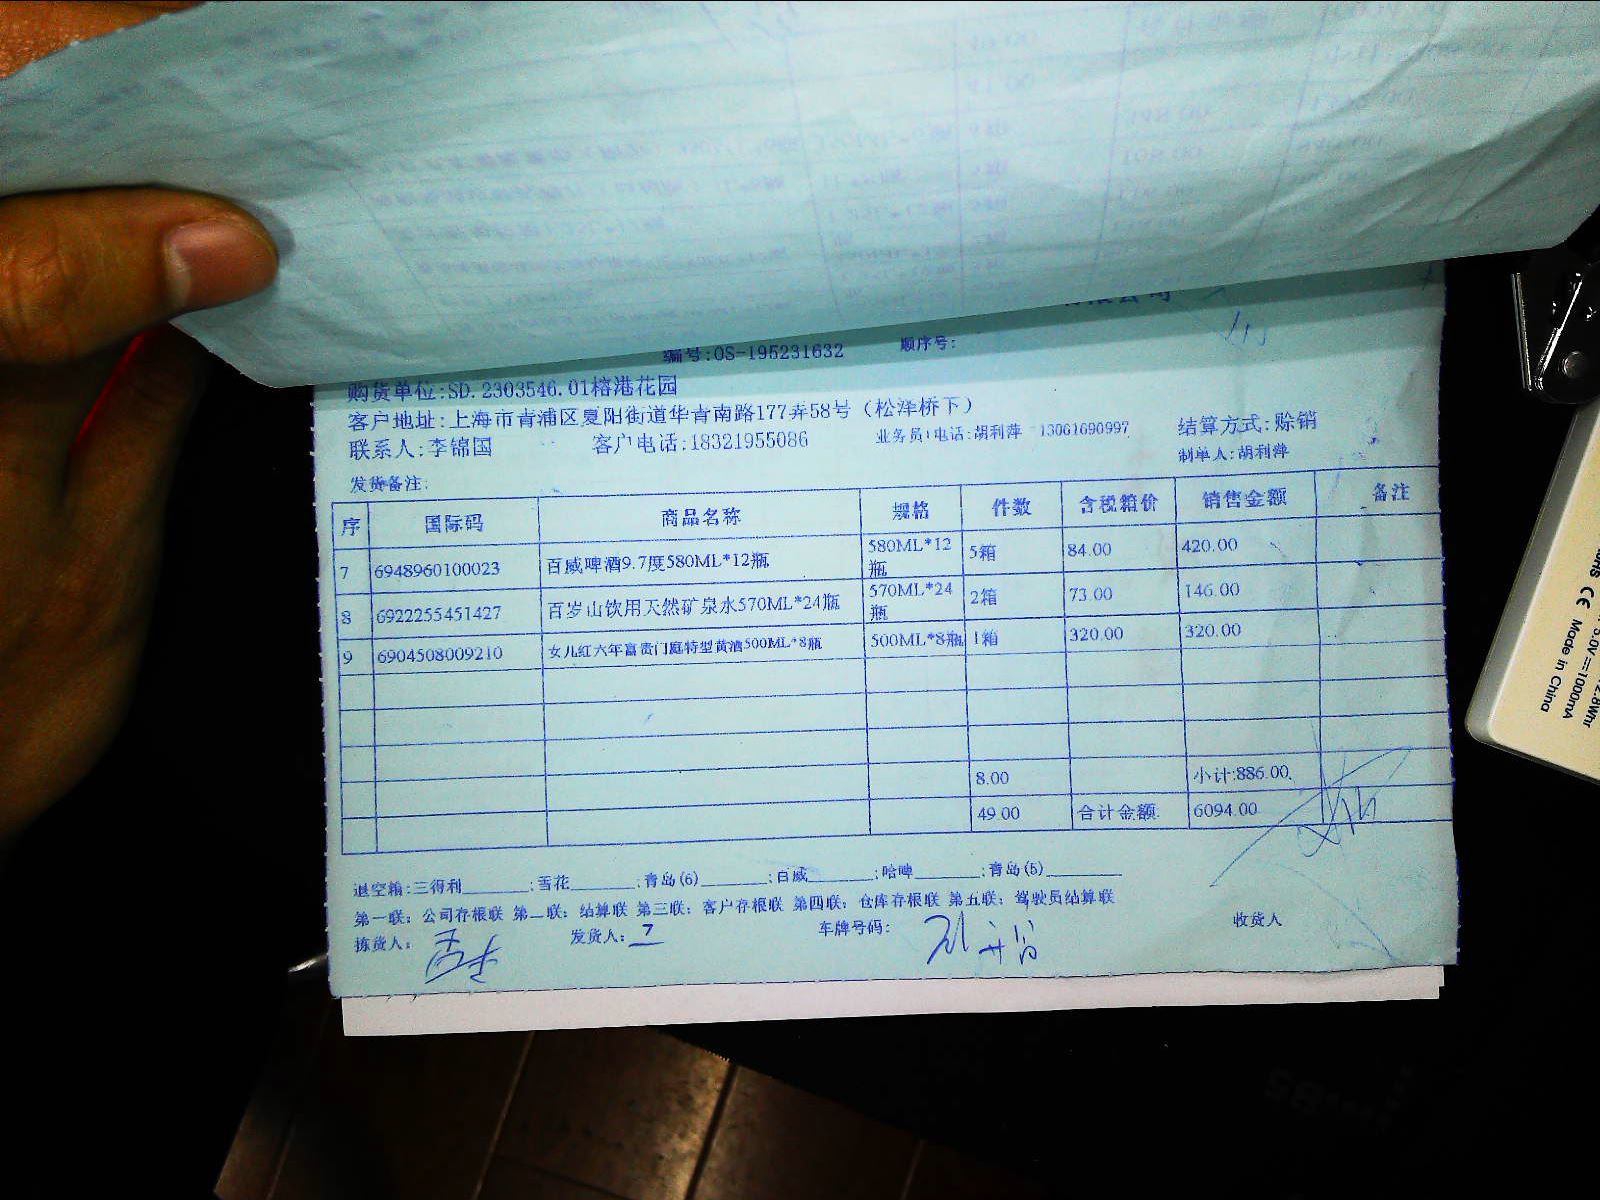 编号:OS-195231632 顺序号:
购货单位:SD.2303546.01榕港花园
客户地址:上海市青浦区夏阳街道华青南路177弄58号（松泽桥下）
联系人:李锦国 客户电话:18321955086 业务员1电话:胡利萍 13061690997 结算方式:赊销
制单人:胡利萍
发货备注:
序 国际码 商品名称 规格 件数 含税箱价 销售金额 备注
7 6948960100023 百威啤酒9.7度580ML*12瓶 580ML*12瓶 5箱 84.00 420.00
8 6922255451427 百岁山饮用天然矿泉水570ML*24瓶 570ML*24瓶 2箱 73.00 146.00
9 6904508009210 女儿红六年富贵门庭特型黄酒500ML*8瓶 500ML*8瓶 1箱 320.00 320.00
8.00 小计:886.00
49.00 合计金额: 6094.00
退空箱:三得利______;雪花______;青岛(6)______;百威______;哈啤______;青岛(5)______
第一联：公司存根联 第二联：结算联 第三联：客户存根联 第四联：仓库存根联 第五联：驾驶员结算联
拣货人： 发货人：7 车牌号码： 收货人
CE Made in China